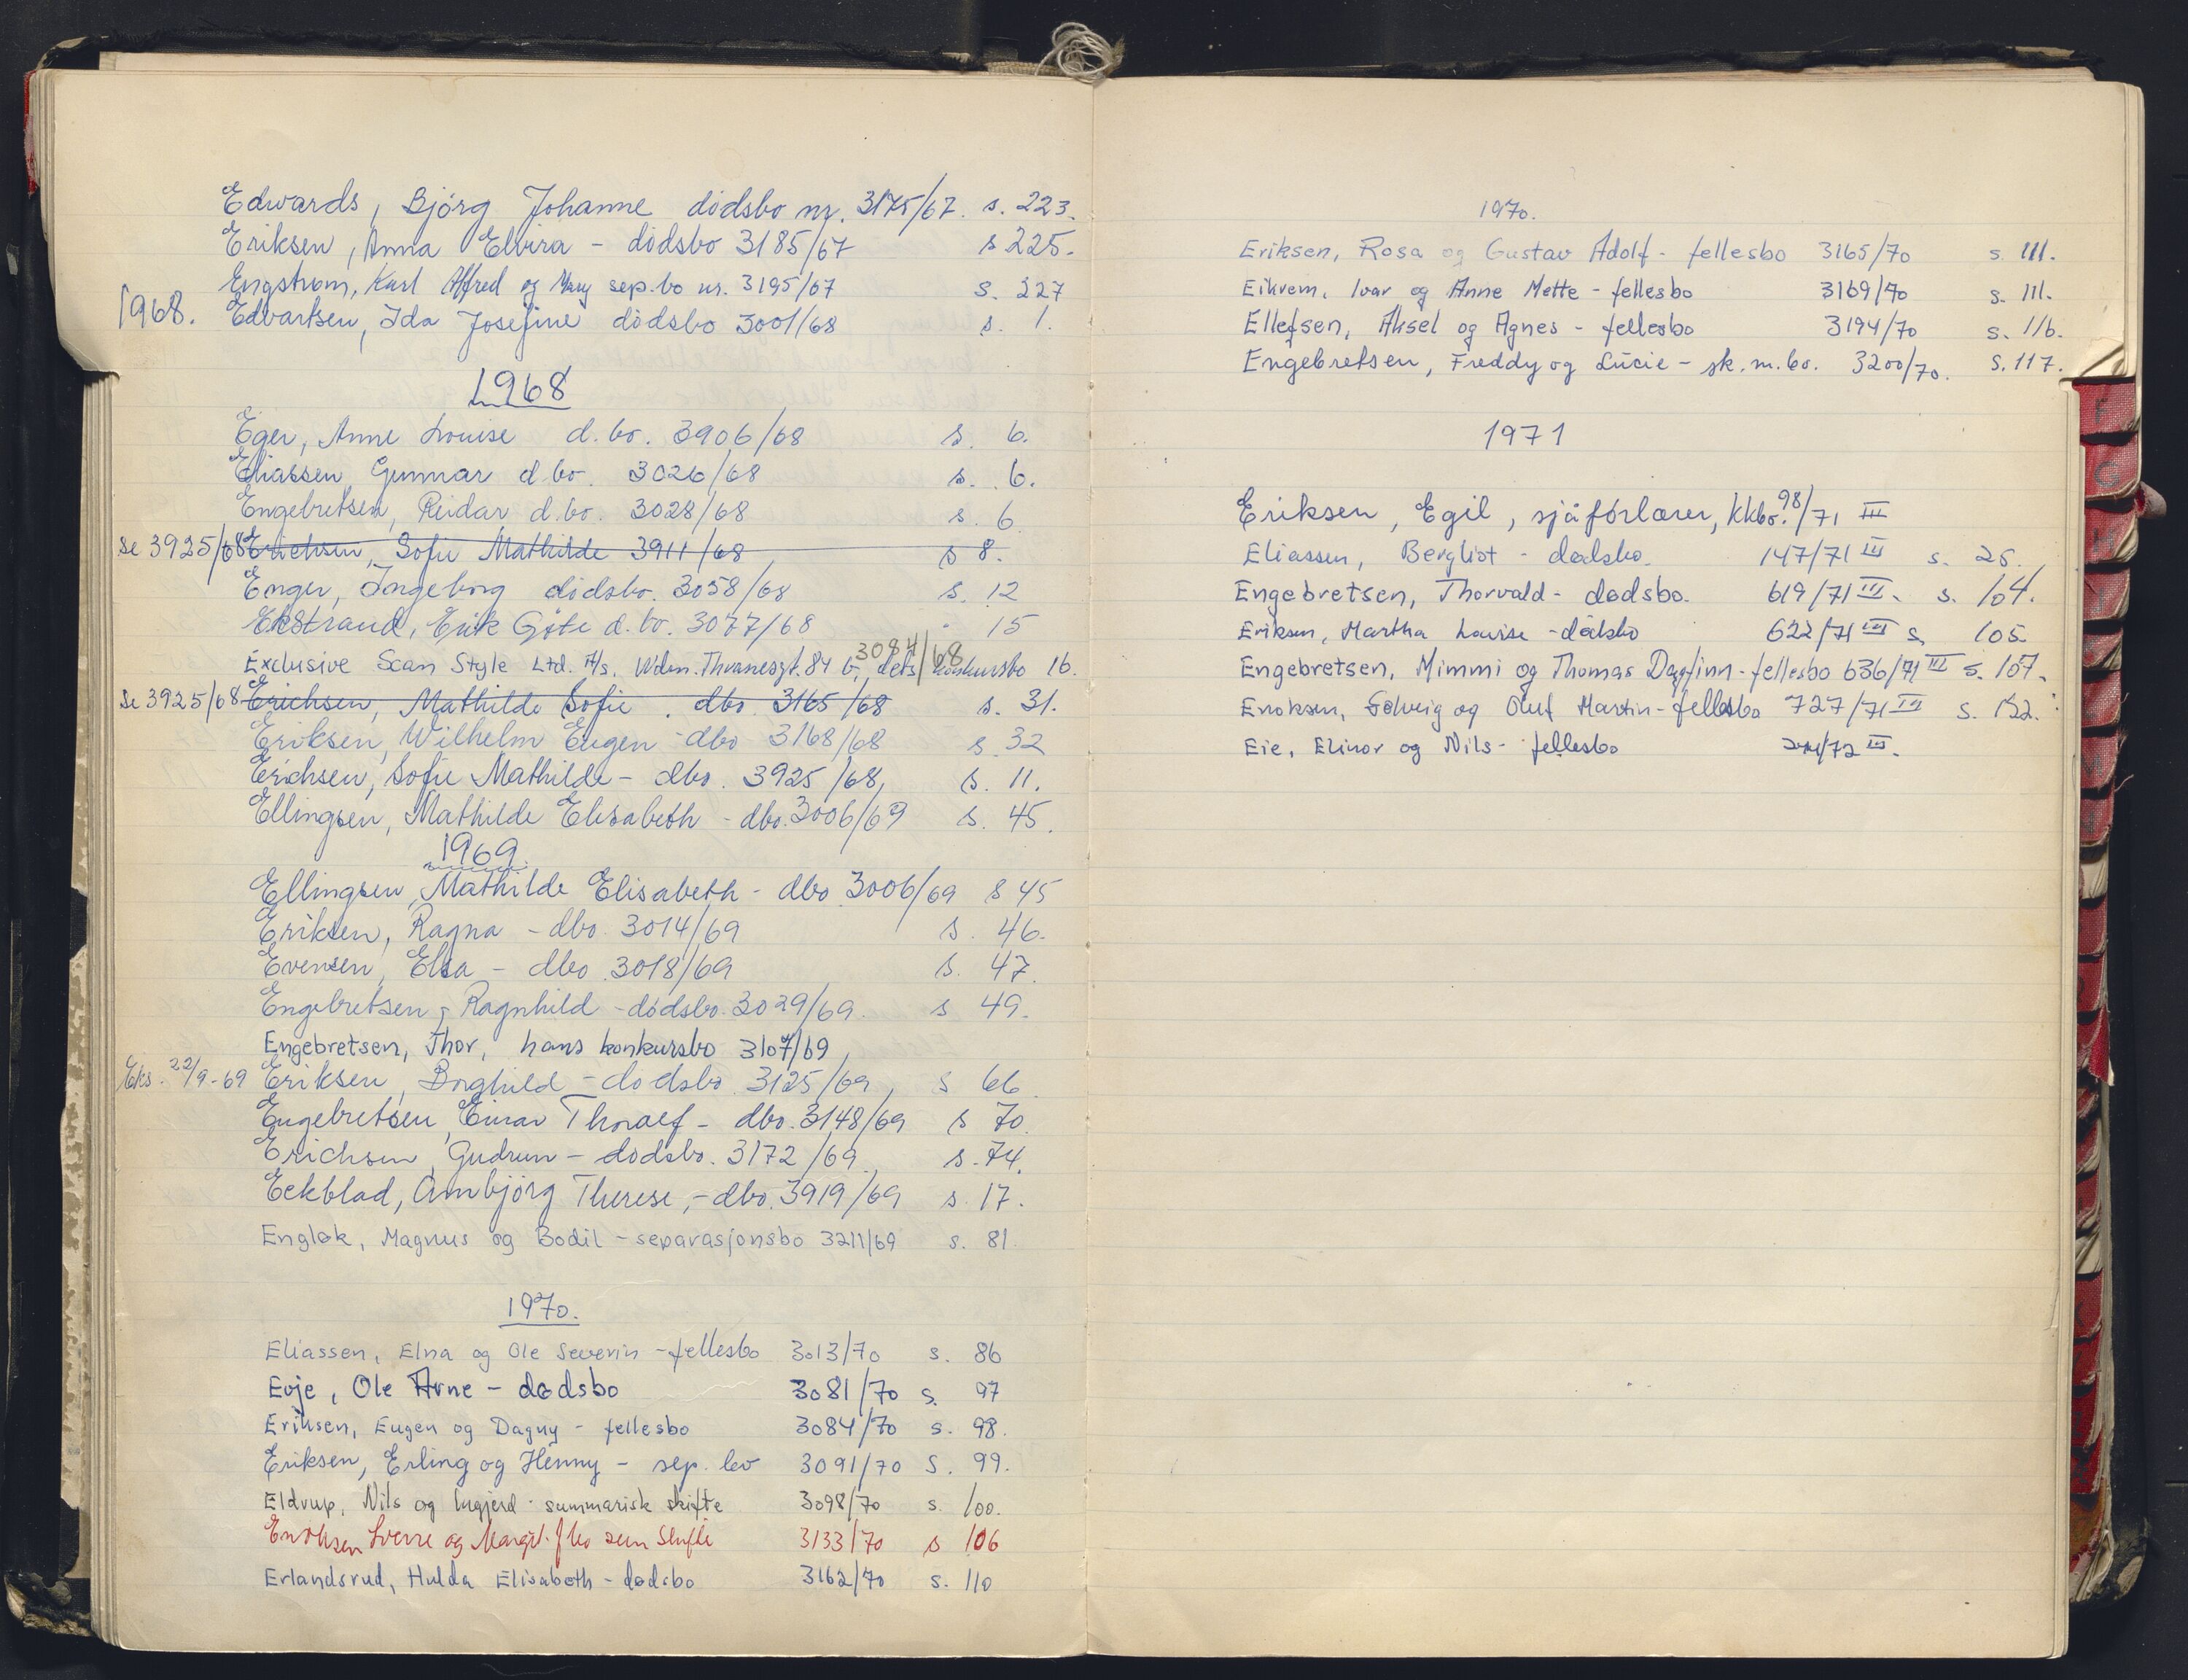 Edwards, Bjørg Johanne dødsbo nr. 3175/67. s. 223.
Eriksen, Anna Elvira - dødsbo 3185/67 s 225.
Engstrøm, Karl Alfred og Mary sep.bo nr. 3195/67 s. 227
1968. Edvartsen, Ida Josefine dødsbo 3001/68 s. 1.
1968
Eger, Anne Louise d.bo. 3906/68 s. 6.
Eliassen Gunnar d.bo. 3026/68 s. 6.
Engebretsen, Reidar d.bo. 3028/68 s. 6
se 3925/68 Erichsen, Sofie Mathilde 3911/68 s 8.
Enger, Ingeborg dødsbo. 3058/68 s. 12
Ekstrand, Erik Gøte d.bo. 3077/68 " 15
3084/68
Exclusive Scan Style Ltd. A/s, Wdm. Thranesgt. 84 b, dets konkursbo 16.
Se 3925/68 Erichsen, Mathilde Sofie . dbo 3165/68 s. 31.
Eriksen, Wilhelm Eugen - dbo 3168/68 s 32
Erichsen, Sofie Mathilde - dbo. 3925/68, s. 11.
Ellingsen, Mathilde Elisabeth - dbo. 3006/69 s. 45.
1969
Ellingsen, Mathilde Elisabeth - dbo 3006/69 s 45
Eriksen, Ragna - dbo. 3014/69 s. 46.
Evensen, Elsa - dbo. 3018/69 s. 47
Engebretsen, Ragnhild - dødsbo. 3029/69. s 49.
Engebretsen, Thor, hans konkursbo 3107/69,
Eks. 22/9-69 Eriksen, Borghild - dødsbo 3125/69, s 66
Engebretsen, Einar Thoralf - dbo. 3148/69 s 70.
Erichsen, Gudrun - dødsbo. 3172/69., s. 74.
Eckblad, Arnbjørg Therese, - dbo. 3919/69 s. 17.
Engløk, Magnus og Bodil - separasjonsbo 3211/69 s. 81.
1970.
Eliassen, Elna og Ole Severin - fellesbo 3013/70 s. 86
Evje, Ole Arne - dødsbo 3081/70 s. 97
Eriksen, Eugen og Dagny - fellesbo 3084/70 s. 98.
Eriksen, Erling og Henny - sep. bo 3091/70 s. 99.
Eldrup, Nils og Ingjerd - summarisk skifte 3098/70 s. 100.
Enoksen Sverre og Margit. f bo sum skifte 3133/70 s 106
Erlandsrud, Hulda Elisabeth - dødsbo 3162/70 s. 110
1970.
Eriksen, Rosa og Gustav Adolf - fellesbo 3165/70 s. 111.
Eikrem, Ivar og Anne Mette - fellesbo 3169/70 s. 111.
Ellefsen, Aksel og Agnes - fellesbo 3194/70 s. 116.
Engebretsen, Freddy og Lucie - sk.m.bo. 3200/70. s. 117.
1971
Eriksen, Egil, sjåførlærer, kkbo. 98/71 III
Eliassen, Bergliot - dødsbo. 147/71 III s. 25.
Engebretsen, Thorvald - dødsbo. 619/71 III. s. 104.
Eriksen, Martha Lovise - dødsbo 622/71 III s. 105.
Engebretsen, Mimmi og Thomas Dagfinn - fellesbo 636/71 III s. 107.
Enoksen, Solveig og Oluf Martin - fellesbo 727/71 III s. 122.
Eie, Elinor og Nils - fellesbo /72 III.